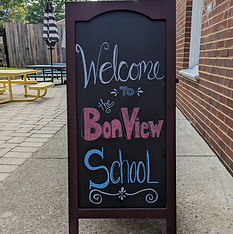 Welcome
TO
the
BonView
School